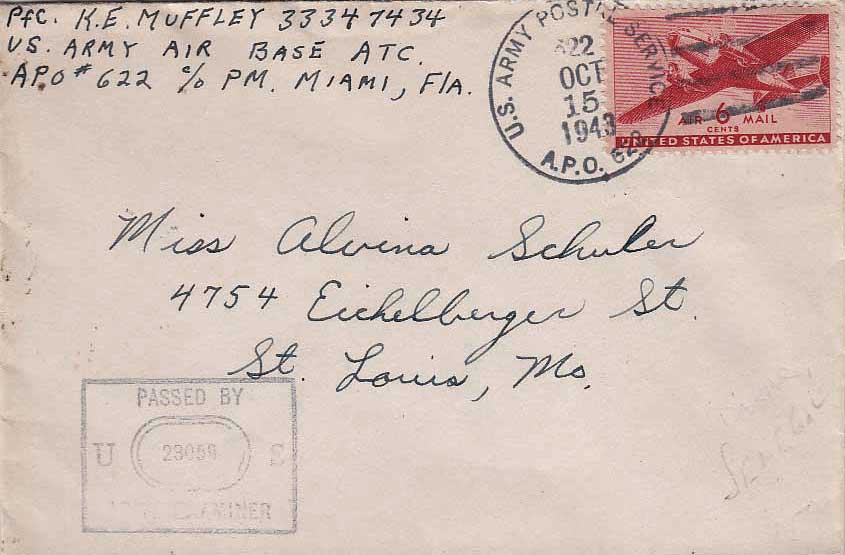 Pfc. K.E. MUFFLEY 33347434
U.S. ARMY AIR BASE ATC.
APO # 622 c/o PM. MIAMI, FlA.
U.S. ARMY POSTAL SERVICE
OCT
15
1943
A.P.O. 622
AIR 6 MAIL
CENTS
UNITED STATES OF AMERICA
Miss Alvina Schuler
4754 Eichelberger St.
St. Louis, Mo.
PASSED BY
U 23059 S
ARMY EXAMINER